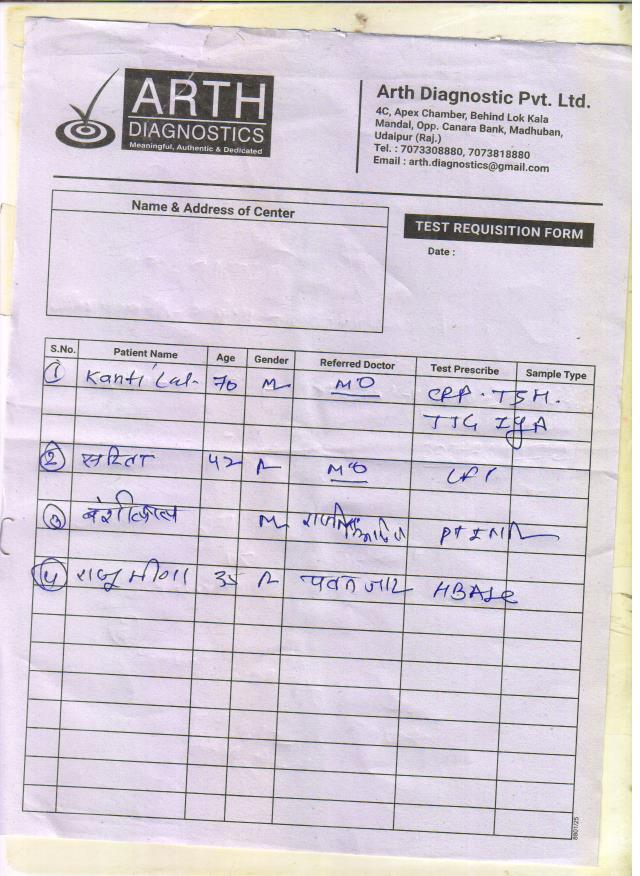 ARTH
DIAGNOSTICS
Meaningful, Authentic & Dedicated
Arth Diagnostic Pvt. Ltd.
4C, Apex Chamber, Behind Lok Kala
Mandal, Opp. Canara Bank, Madhuban,
Udaipur (Raj.)
Tel. : 7073308880, 7073818880
Email : arth.diagnostics@gmail.com
Name & Address of Center
TEST REQUISITION FORM
Date :
S.No. Patient Name Age Gender Referred Doctor Test Prescribe Sample Type
1 Kanti Lal 70 M MO CRP. TSH.
TTG IgA
2 सरिता 42 MO
3 बंशीलाल M PT INR
4 राजू मीणा 35 HBA1c
8801/25